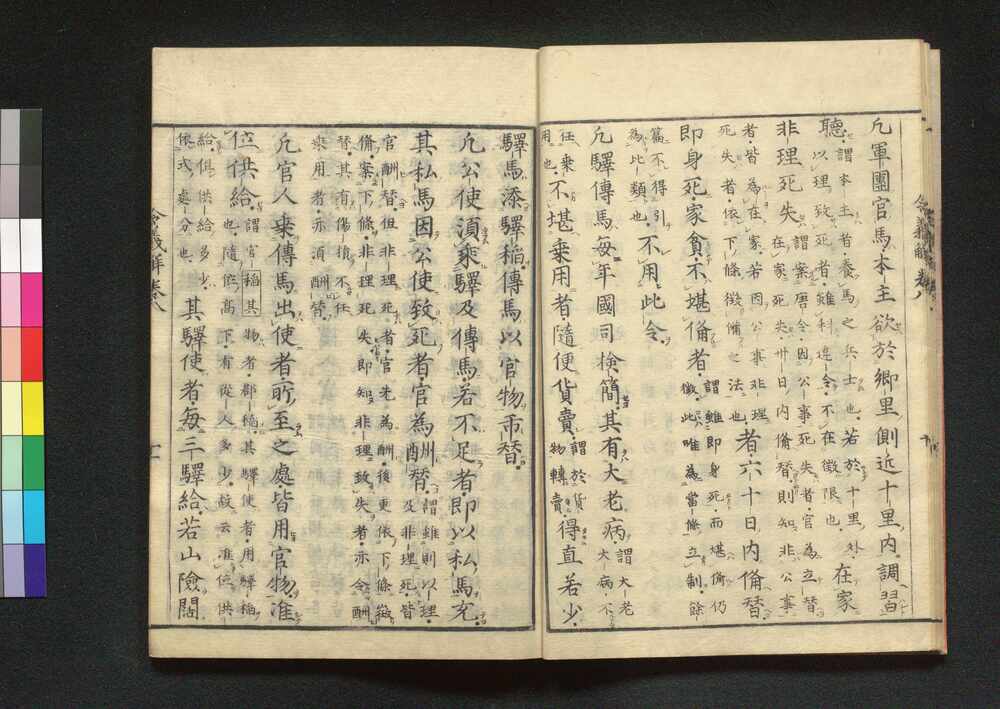 凡軍團官馬本主欲於郷里側近十里内調習
聽謂本主者養馬之兵士也若於十里外
以理致死者雖科違令不在徴限也在家
非理死失謂案唐令因公事死失者官為立替
在家死失卅日内備替則知非公事
者皆為在家若因公事非理
死失者依下條徴備之法也者六十日内備替
即身死家貧不堪備者謂雖即身死而堪備仍
徴此唯為當條立制餘
篇不得引
為此類也不用此令
凡驛傳馬毎年國司檢簡其有大老病謂大老
大病不
任乗
用也不堪乗用者隨便貨賣謂於貨
物轉賣得直若少
驛馬添驛稲傳馬以官物市替
凡公使須乗驛及傳馬若不足者即以私馬充
其私馬因公使致死者官為酬替謂雖則以理
及非理死皆
官酬替但非理死者官先為酬後更依下條徴
備案下條非理死失即知非理致失者亦令酬
替其有傷損不任
乗用者亦須酬替
凡官人乗傳馬出使者所至之處皆用官物准
位供給謂官物者郡稲其驛使者用驛稲
也隨位高下有從人多少故云准位供
給供給多少
依式處分也其驛使者毎三驛給若山險闊
令義解 卷八
十
令義解 卷八
十一